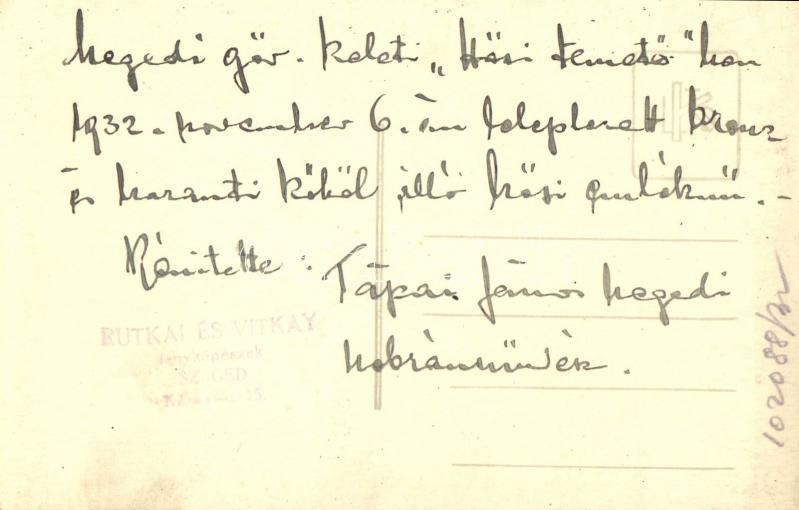 Szegedi gör. keleti „Hősi temető"ben
1932. november 6.-án leleplezett bronz
és haraszti kőből álló hősi emlékmű. -
Készítette: Tápai János szegedi
szobrászművész.
RUTKAI ÉS VITKAY
fényképészek
SZEGED
15.
102088